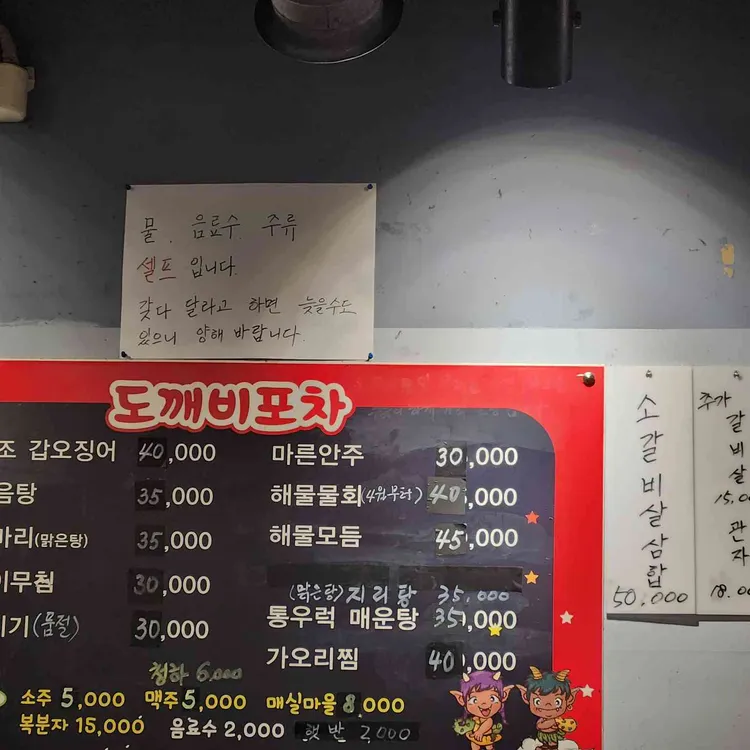 물. 음료수. 주류
셀프 입니다.
갖다 달라고 하면 늦을수도
있으니 양해 바랍니다.
도깨비포차
조 갑오징어 40,000
음탕 35,000
마리(맑은탕) 35,000
이무침 30,000
기(품절) 30,000
청하 6,000
소주 5,000 맥주 5,000 매실마을 8,000
복분자 15,000 음료수 2,000 햇반 2,000
마른안주 30,000
해물물회(4월부터) 40,000
해물모듬 45,000
(맑은탕)지리탕 35,000
통우럭 매운탕 35,000
가오리찜 40,000
소갈비살삼합
50,000
추가
갈비살
15,00
관자
18,00